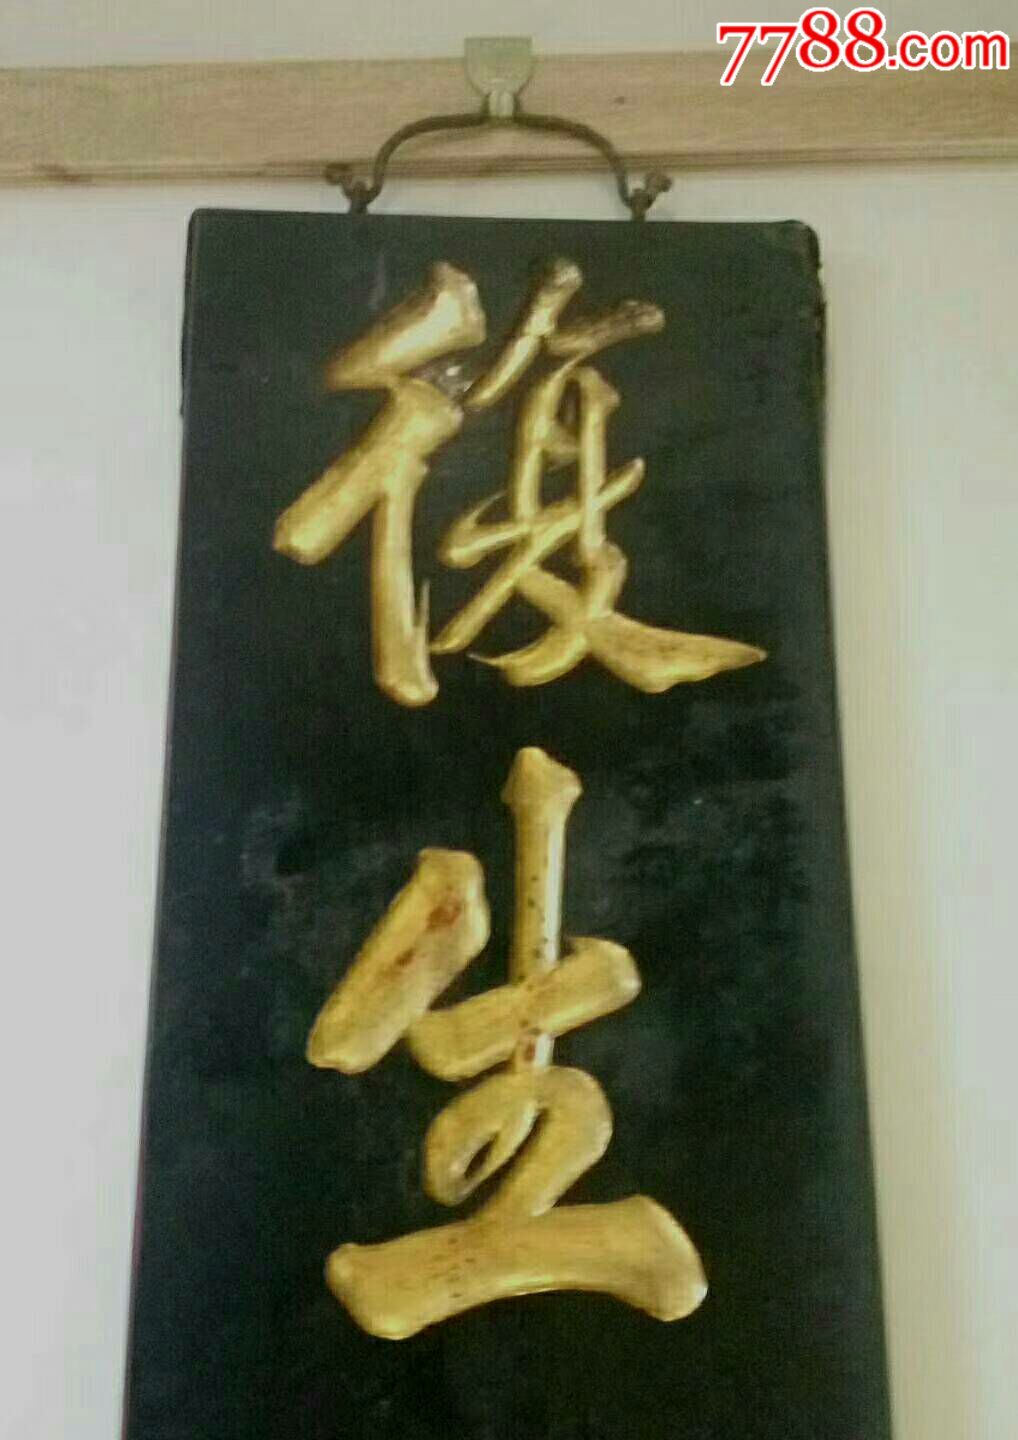 7788.com
復
生